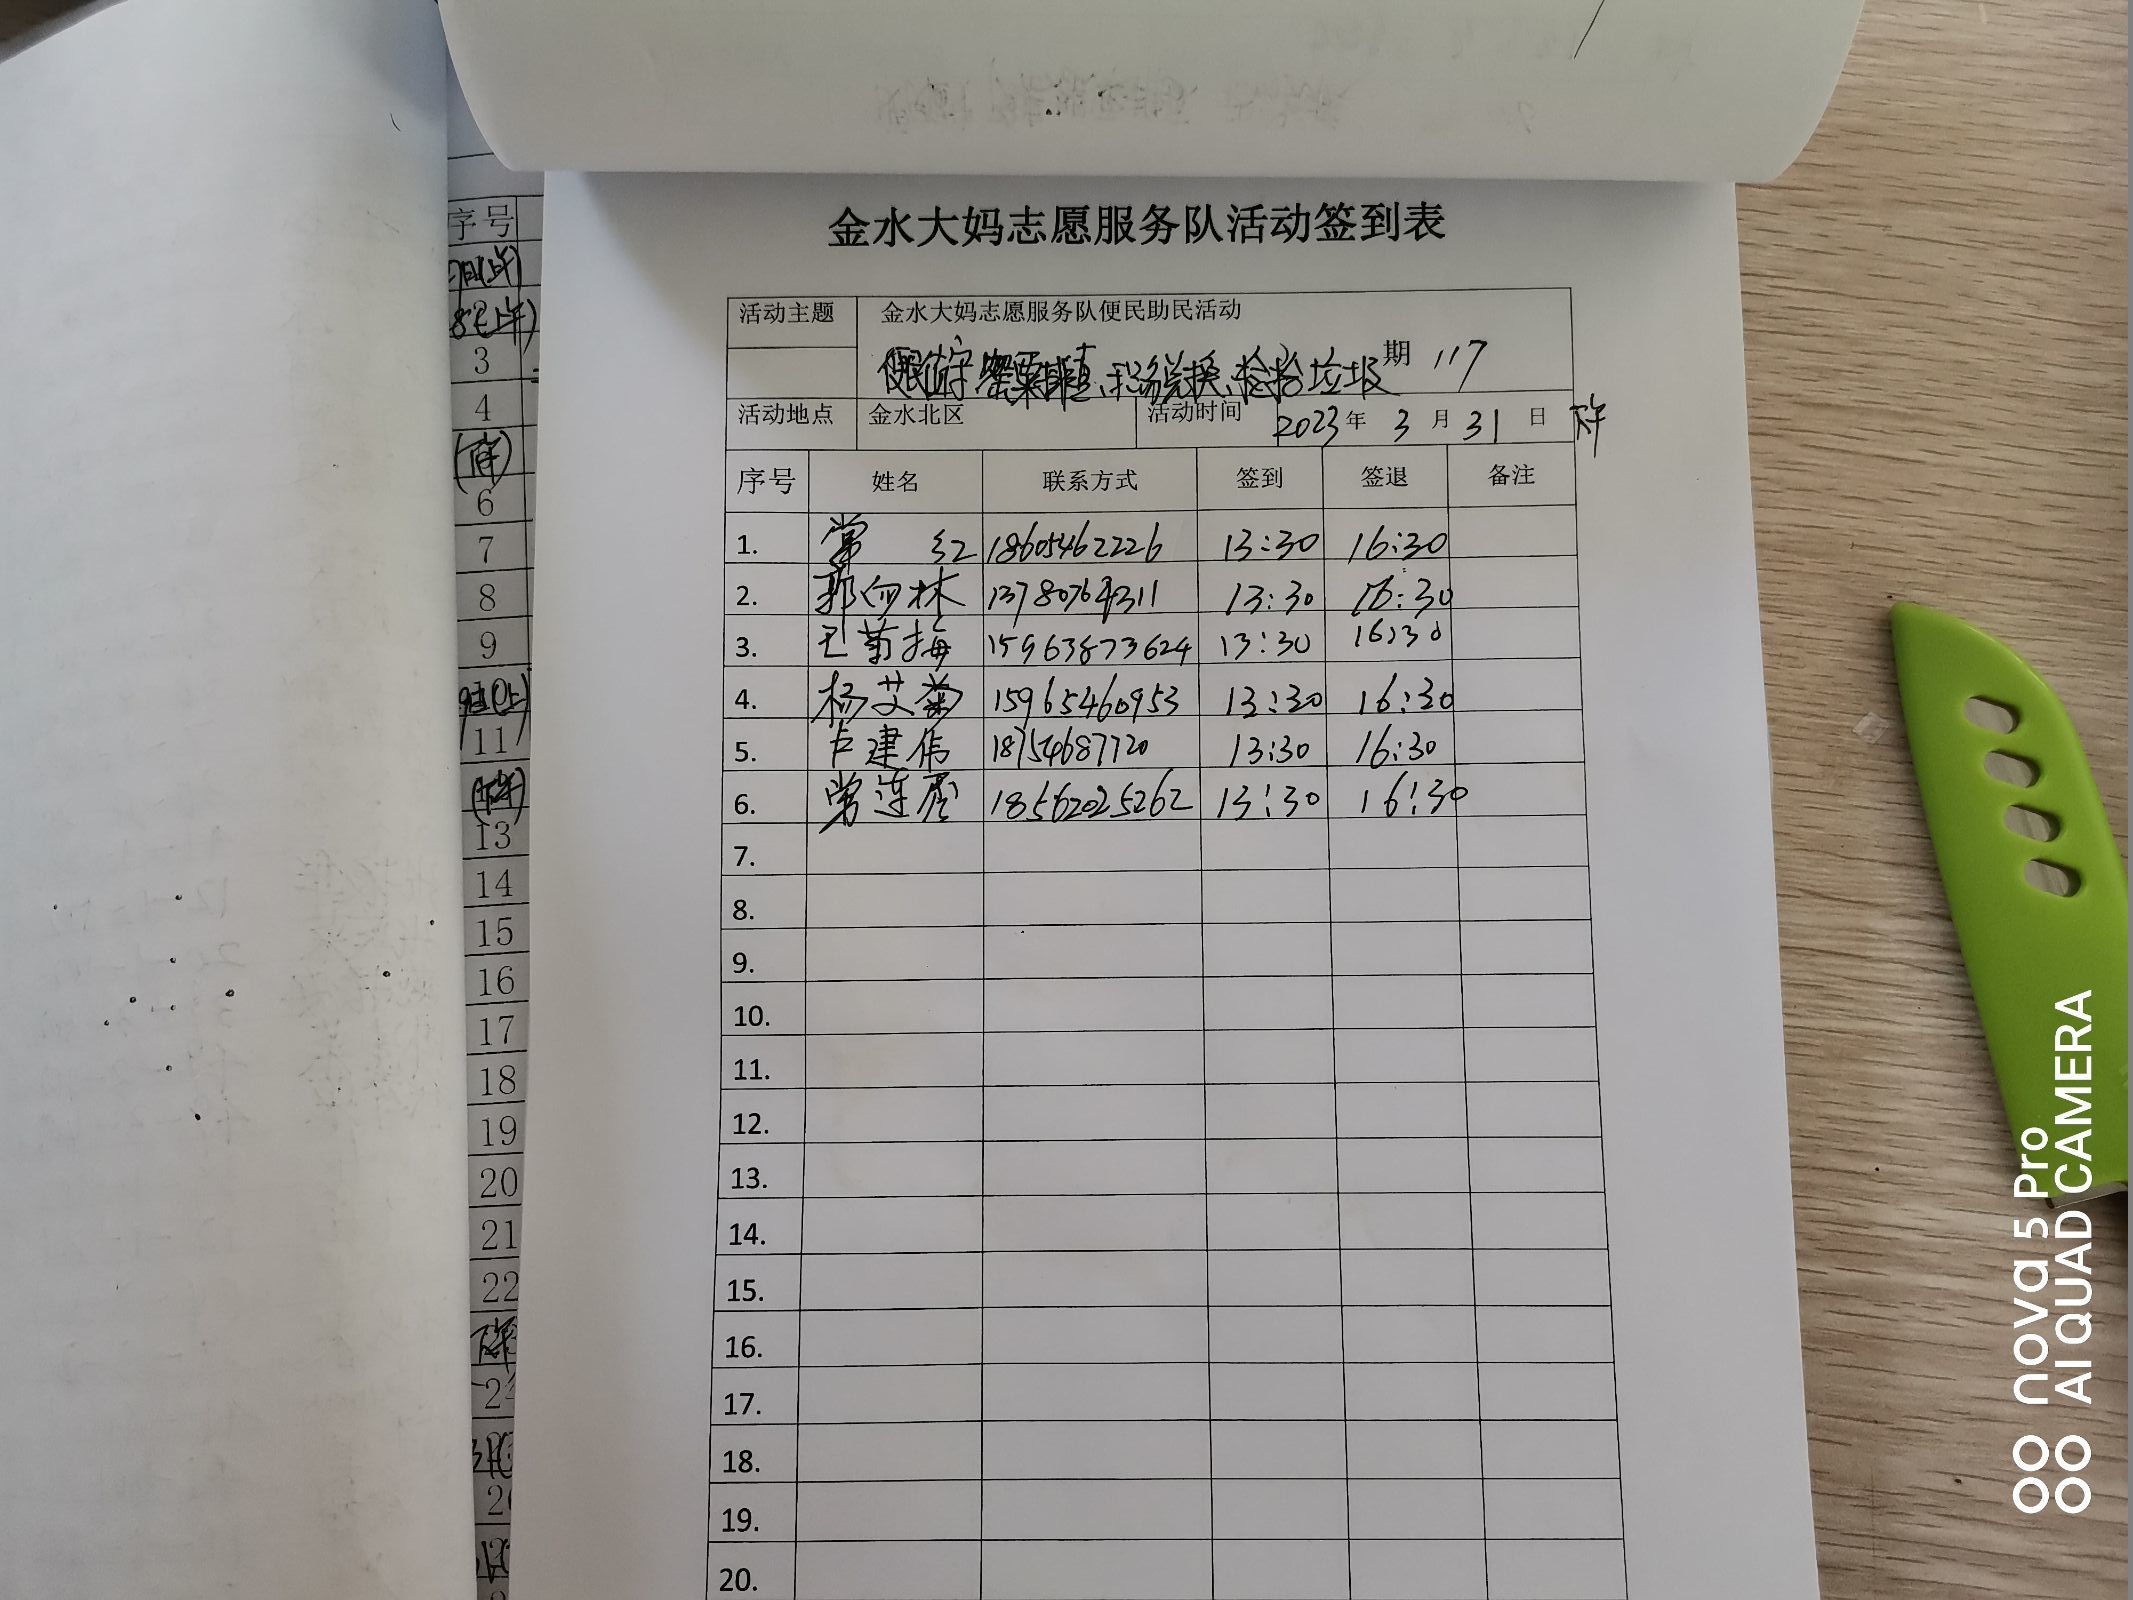 金水大妈志愿服务队活动签到表
活动主题 金水大妈志愿服务队便民助民活动
积分兑换、捡拾垃圾 期 117
活动地点 金水北区 活动时间 2023 年 3 月 31 日 下午
序号 姓名 联系方式 签到 签退 备注
1. 常红 18605462226 13:30 16:30
2. 郭向林 13780764311 13:30 16:30
3. 王菊梅 15963873624 13:30 16:30
4. 杨艾菊 15965460953 13:30 16:30
5. 卢建伟 18754687720 13:30 16:30
6. 常连 18562025262 13:30 16:30
7.
8.
9.
10.
11.
12.
13.
14.
15.
16.
17.
18.
19.
20.
序号
3
4
6
7
8
9
11
13
14
15
16
17
18
19
20
21
22
nova 5 Pro
AI QUAD CAMERA